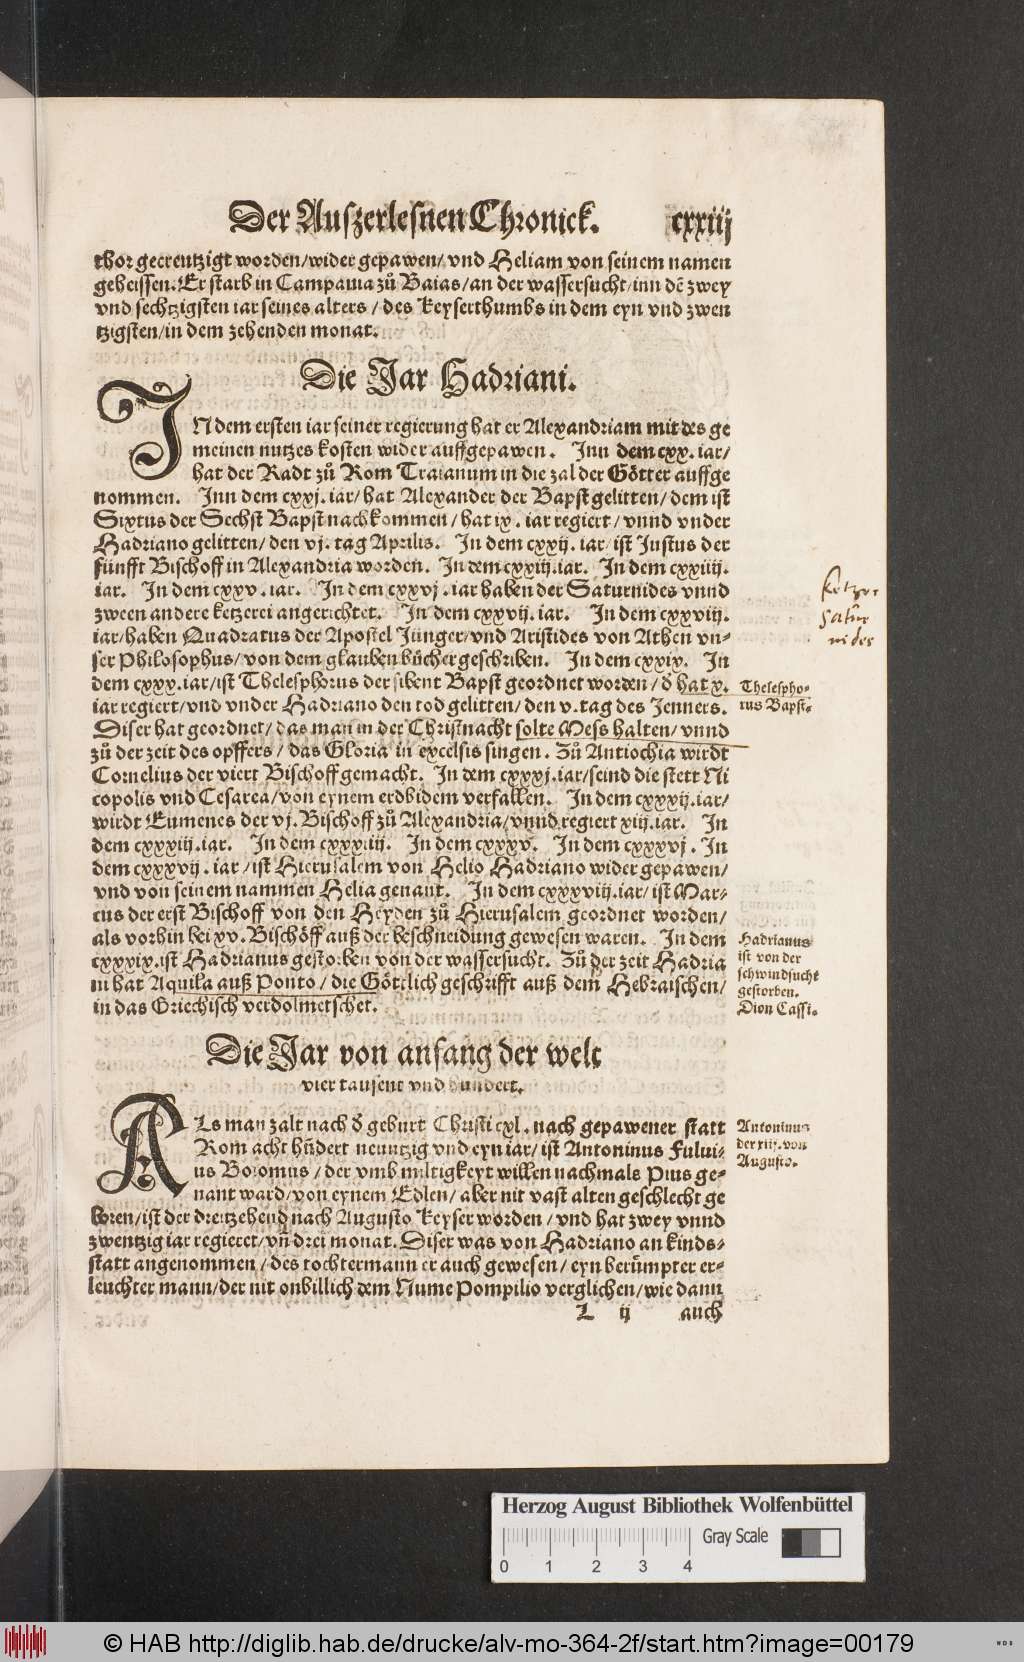 Der Auszerlesnen Chronick. cxxiij
thor gecreutzigt worden/wider gepawen/vnd Heliam von seinem namen
geheissen. Er starb in Campania zů Baias/an der wassersucht/inn dē zwey
vnd sechtzigsten iar seines alters/des Keyserthumbs in dem eyn vnd zwen
tzigsten/in dem zehenden monat.
Die Jar Hadriani.
IN dem ersten iar seiner regierung hat er Alexandriam mit des ge
meinen nutzes kosten wider auffgepawen. Inn dem cxx. iar/
hat der Radt zů Rom Traianum in die zal der Götter auffge
nommen. Inn dem cxxj. iar/hat Alexander der Bapst gelitten/dem ist
Sixtus der Sechst Bapst nachkommen/hat ix. iar regiert/vnnd vnder
Hadriano gelitten/den vj. tag Aprilis. In dem cxxij. iar/ist Justus der
fünfft Bischoff in Alexandria worden. In dem cxxiij. iar. In dem cxxiiij.
iar. In dem cxxv. iar. In dem cxxvj. iar haben der Saturnides vnnd
zween andere ketzerei angerichtet. In dem cxxvij. iar. In dem cxxviij.
iar/haben Quadratus der Apostel Jünger/vnd Aristides von Athen vn-
ser Philosophus/von dem glauben bücher geschriben. In dem cxxix. In
dem cxxx. iar/ist Thelesphorus der sibent Bapst geordnet worden/d̕ hat x.
iar regiert/vnd vnder Hadriano den tod gelitten/den v. tag des Jenners.
Diser hat geordnet/das man in der Christnacht solte Mess halten/vnnd
zů der zeit des opffers/das Gloria in excelsis singen. Zů Antiochia wirdt
Cornelius der viert Bischoff gemacht. In dem cxxxj. iar/seind die stett Ni
copolis vnd Cesarea/von eynem erdbidem verfallen. In dem cxxxij. iar/
wirdt Eumenes der vj. Bischoff zů Alexandria/vnnd regiert xiij. iar. In
dem cxxxiij. iar. In dem cxxxiiij. In dem cxxxv. In dem cxxxvj. In
dem cxxxvij. iar/ist Hierusalem von Helio Hadriano wider gepawen/
vnd von seinem nammen Helia genant. In dem cxxxviij. iar/ist Mar-
cus der erst Bischoff von den Heyden zů Hierusalem geordnet worden/
als vorhin bei xv. Bischöff auß der beschneidung gewesen waren. In dem
cxxxix. ist Hadrianus gestorben von der wassersucht. Zů der zeit Hadria
ni hat Aquila auß Ponto/die Göttlich geschrifft auß dem Hebraischen/
in das Griechisch verdolmetschet.
Die Jar von anfang der welt
vier tausent vnd hundert.
ALs man zalt nach d̕ geburt Christi cxl. nach gepawener statt
Rom acht hūdert neuntzig vnd eyn iar/ist Antoninus Fului-
us Boiomus/der vmb miltigkeyt willen nachmals Pius ge-
nant ward/von eynem Edlen/aber nit vast alten geschlecht ge
boren/ist der dreitzehend nach Augusto Keyser worden/vnd hat zwey vnnd
zwentzig iar regieret/vñ drei monat. Diser was von Hadriano an kinds-
statt angenommen/des tochtermann er auch gewesen/eyn berümpter er-
leuchter mann/der nit onbillich dem Nume Pompilio verglichen/wie dann
L ij auch
ketzer
Satur
nides
Thelespho-
rus Bapst.
Hadrianus
ist von der
schwindsucht
gestorben.
Dion Cassi.
Antoninus
der xiij. von
Augusto.
Herzog August Bibliothek Wolfenbüttel
Gray Scale
0 1 2 3 4
© HAB http://diglib.hab.de/drucke/alv-mo-364-2f/start.htm?image=00179